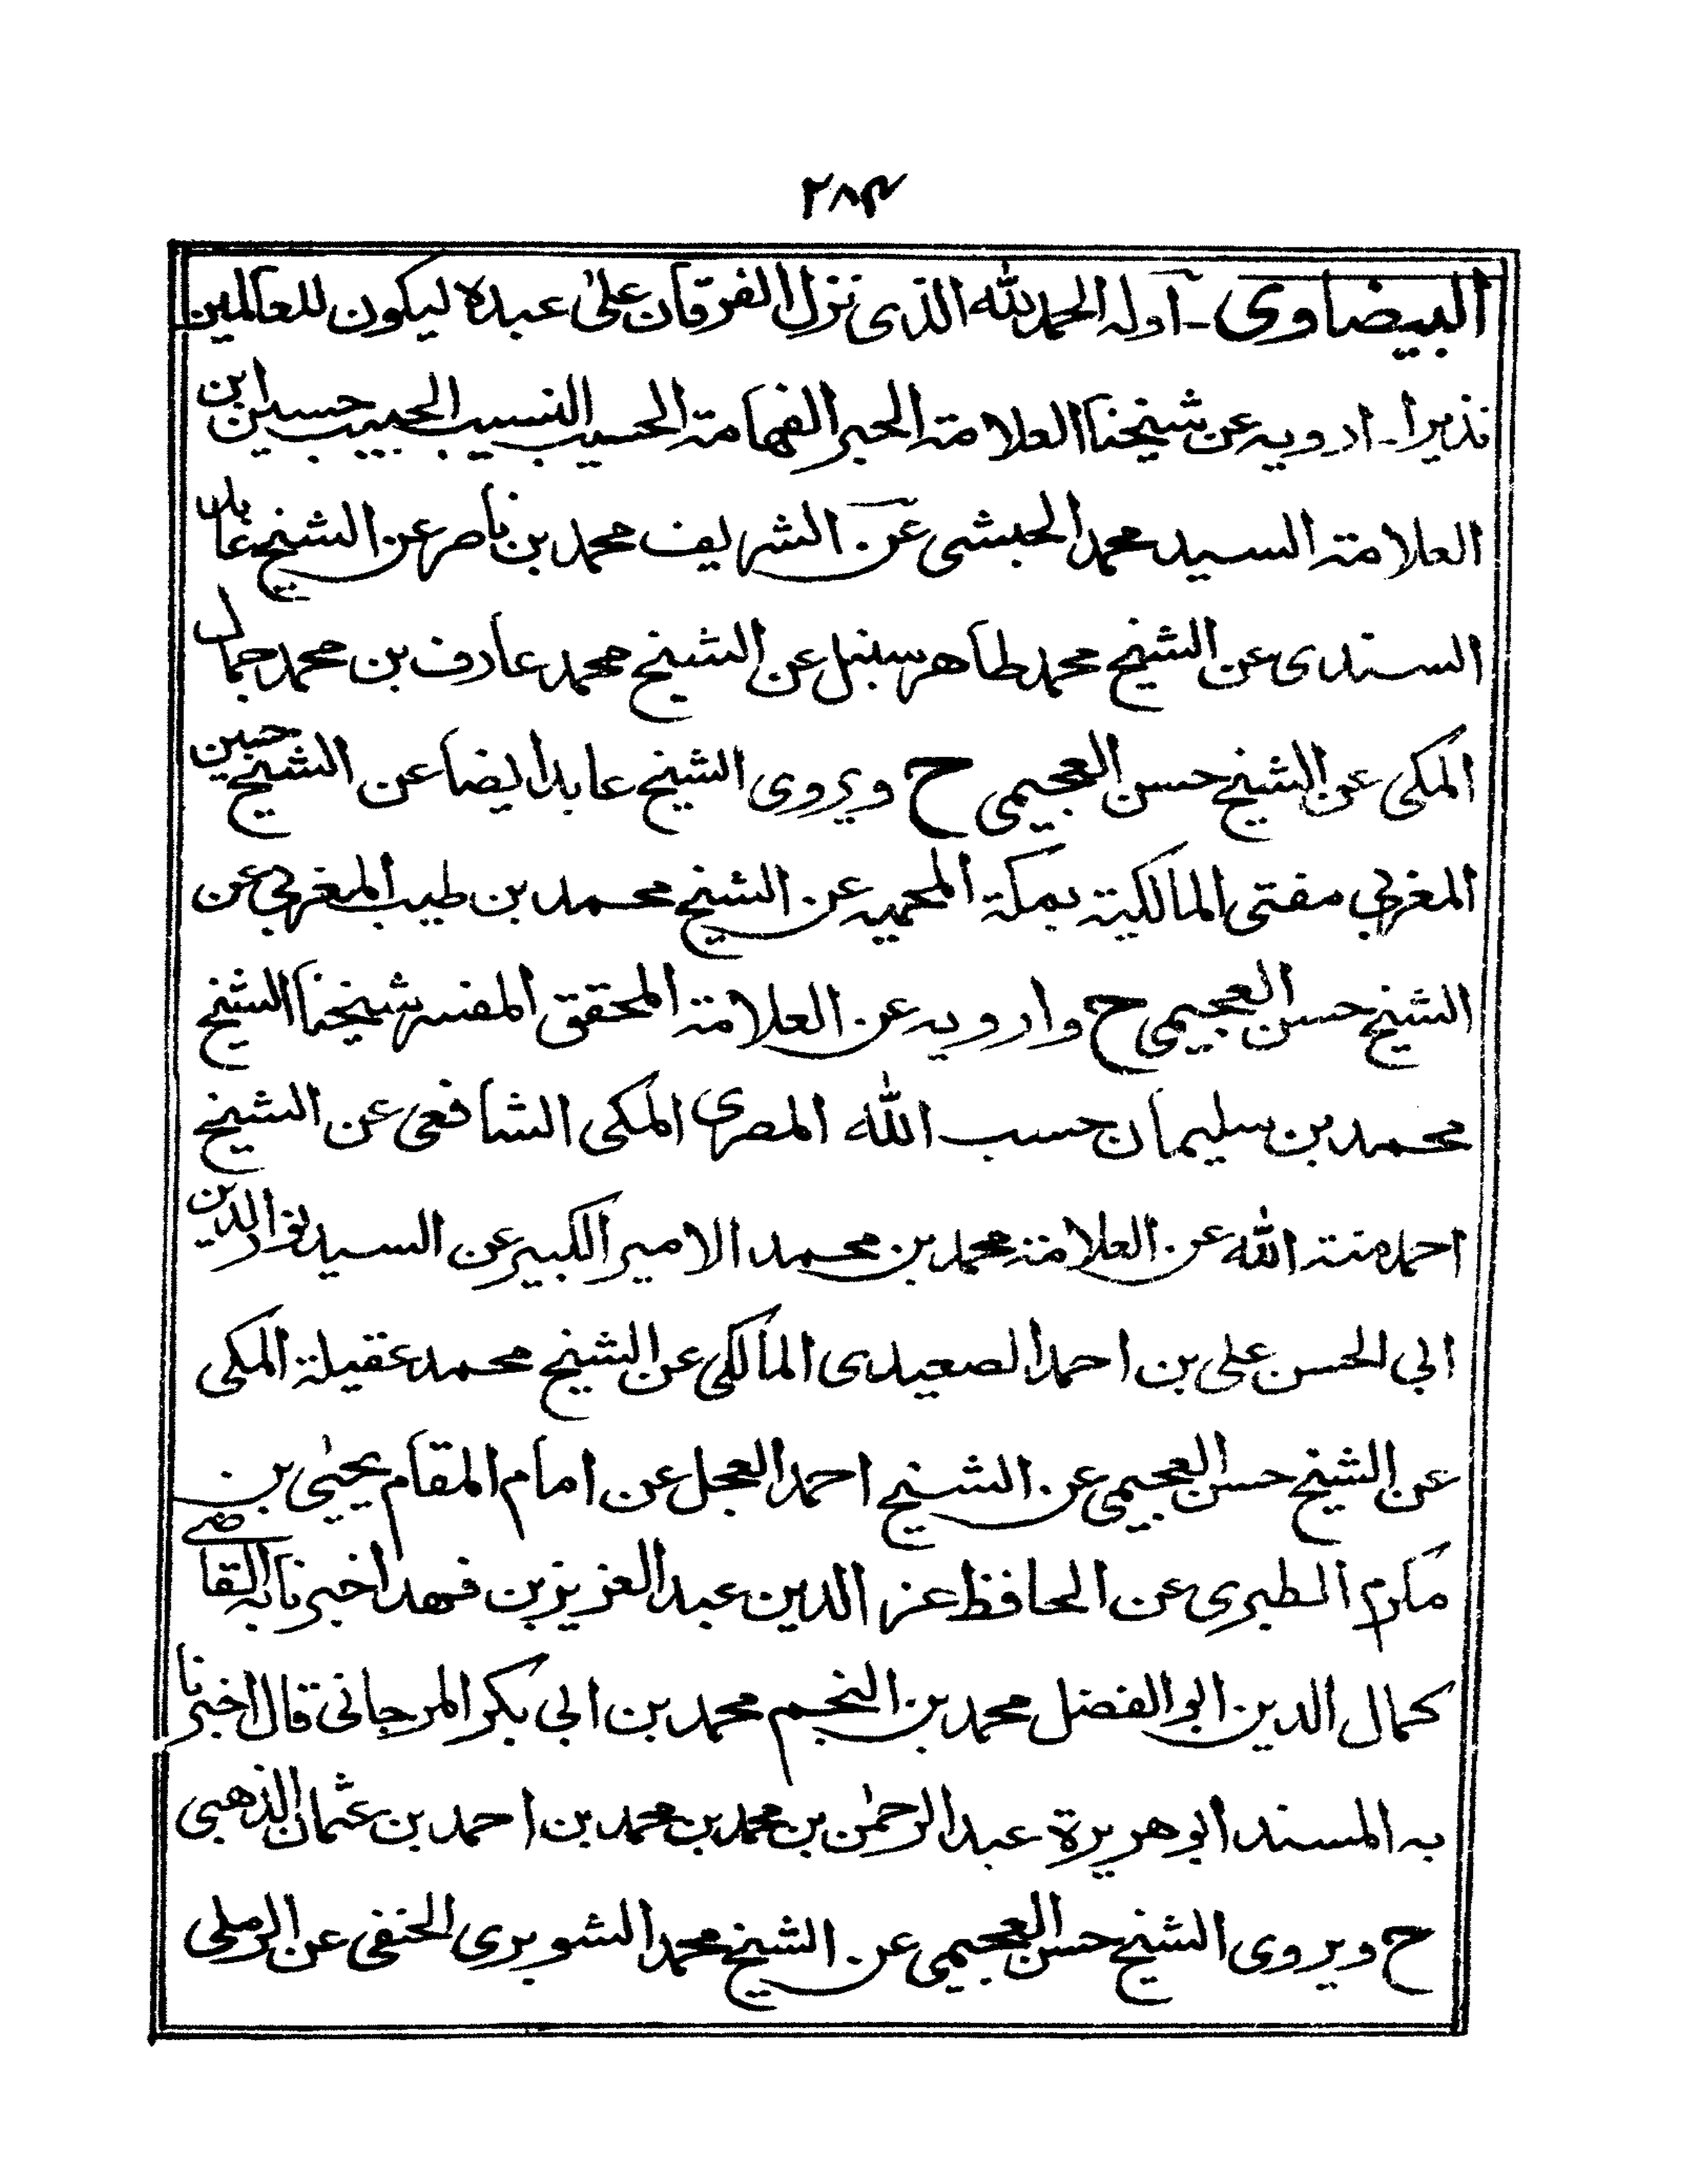 ۲۸۴
البیضاوی ۔ اوله الحمد لله الذی نزل الفرقان علیٰ عبده لیکون للعالمین
نذیرا ۔ ارویه عن شیخنا العلامة الحبر الفهامة الحسیب النسیب الحبیب حسین ابن
العلامة السید محمد الحبشی عن الشریف محمد بن ناصر عن الشیخ عابد
السندی عن الشیخ محمد طاهر سنبل عن الشیخ محمد عارف بن محمد جمال
المکی عن الشیخ حسن العجیمی ح ویروی الشیخ عابد ایضا عن الشیخ حسین
المغربی مفتی المالکیة بمکة المحمیه عن الشیخ محمد بن طیب المغربی عن
الشیخ حسن العجیمی ح وارویه عن العلامة المحقق المفسر شیخنا الشیخ
محمد بن سلیمان حسب الله المصری المکی الشافعی عن الشیخ
احمد منة الله عن العلامة محمد بن محمد الامیر الکبیر عن السید نور الدین
ابی الحسن علی بن احمد الصعیدی المالکی عن الشیخ محمد عقیلة المکی
عن الشیخ حسن العجیمی عن الشیخ احمد العجل عن امام المقام یحیٰی بن
مکرم الطبری عن الحافظ عز الدین عبد العزیز بن فهد اخبرنا به القاضی
کمال الدین ابو الفضل محمد بن النجم محمد بن ابی بکر المرجانی قال اخبرنا
به المسند ابو هریرة عبد الرحمٰن بن محمد بن محمد بن احمد بن عثمان الذهبی
ح ویروی الشیخ حسن العجیمی عن الشیخ محمد الشوبری الحنفی عن الرملی